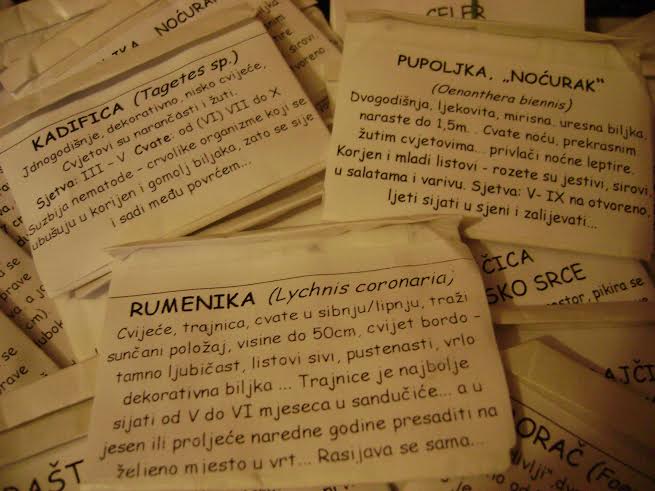 CELER
NOĆURAK
KADIFICA (Tagetes sp.)
Jdnogodišnje, dekorativno, nisko cvijeće,
Cvjetovi su narančasti i žuti.
Sjetva: III - V Cvate: od (VI) VII do X
Suzbija nematode - crvolike organizme koji se
ubušuju u korijen i gomolj biljaka, zato se sije
i sadi među povrćem...
PUPOLJKA, „NOĆURAK"
(Oenonthera biennis)
Dvogodišnja, ljekovita, mirisna, uresna biljka,
naraste do 1,5m. . Cvate noću, prekrasnim
žutim cvjetovima... privlači noćne leptire.
Korjen i mladi listovi - rozete su jestivi, sirovi,
u salatama i varivu. Sjetva: V- IX na otvoreno,
ljeti sijati u sjeni i zalijevati...
RUMENIKA (Lychnis coronaria)
Cvijeće, trajnica, cvate u sibnju/lipnju, traži
sunčani položaj, visine do 50cm, cvijet bordo -
tamno ljubičast, listovi sivi, pustenasti, vrlo
dekorativna biljka ... Trajnice je najbolje
sijati od V do VI mjeseca u sandučiće... a u
jesen ili proljeće naredne godine presaditi na
željeno mjesto u vrt... Rasijava se sama...
ČICA
SKO SRCE
pikira se
AJČI
ORAČ
RAŠT